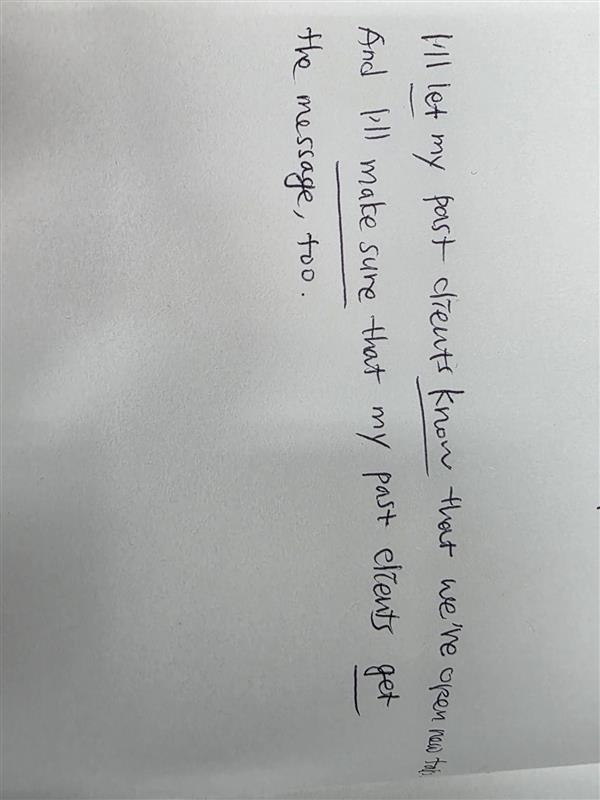 I'll let my past clients know that we're open new
And I'll make sure that my past clients get
the message, too.